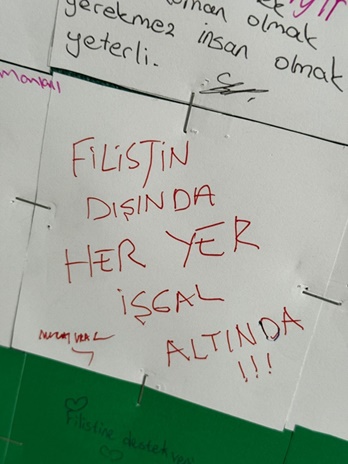 gerekmez insan olmak
yeterli.
FİLİSTİN
DIŞINDA
HER YER
İŞGAL
ALTINDA
!!!
Filistine destek